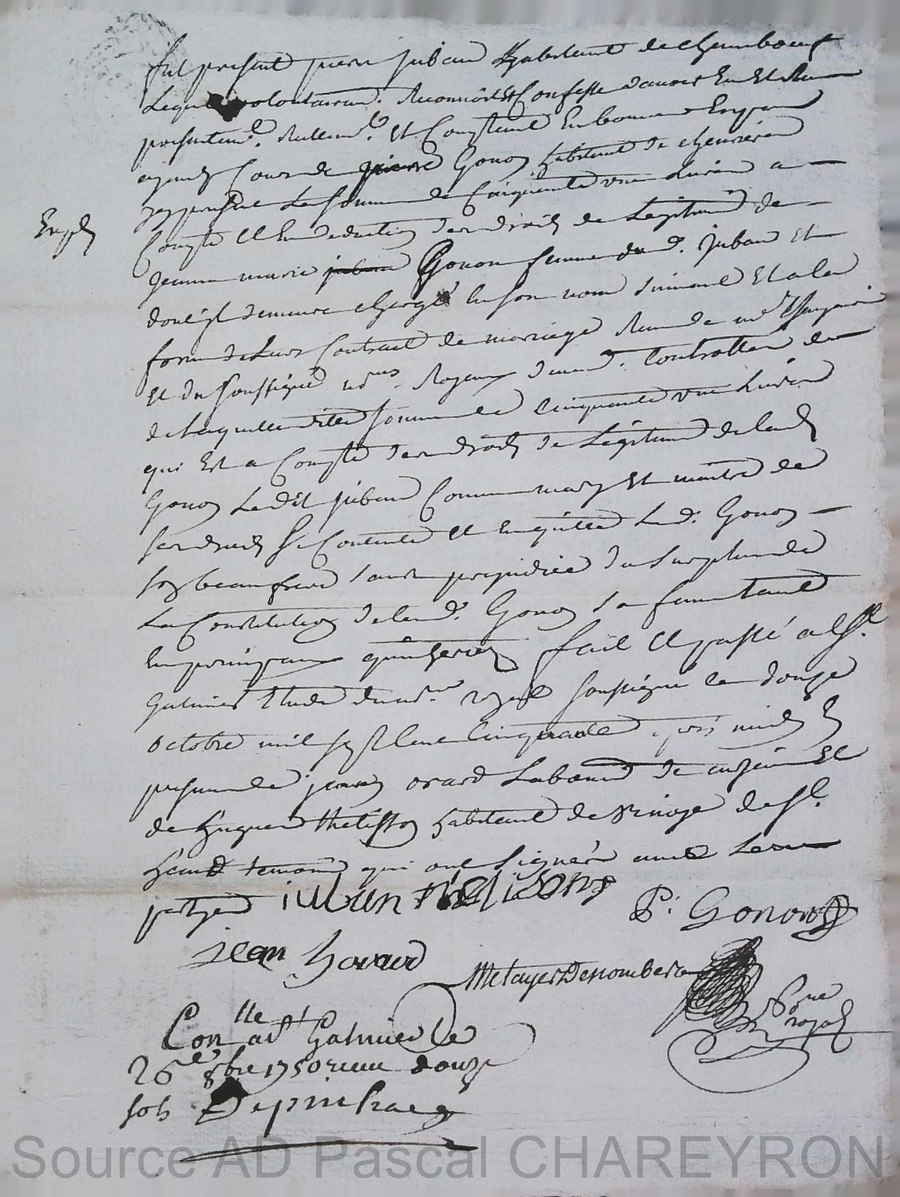 fut present pierre juban habitant de chamboeuf
Lequel volontairem.t Reconnoit et Confesse d'avoir Eu et Reçu
presentem.t Reellem.t Et Comptant En bonnes Especes
ayant Cours de pierre Gonon habitant de chevrieres
icy present La somme de Cinquante une Livres a
Compte Et En deduction des droits de Legitime de
jeanne marie juban Gonon femme du d. juban Et
dont il demeure chargé En son nom suivant Et a la
forme de Leur Contract de mariage Reçu de
Et du soussigné no.re Royaux
de Laquelle ditte somme de Cinquante une Livres
qui Est a Compte des droits de Legitime de lad.
Gonon Ledit juban Comme mary Et maitre de
ses droits se Contente Et En quitte Led. Gonon
son beau frere sans prejudice du surplus de
La Constitution de lad. Gonon sa femme tant
En principaux qu'interets fait Et passé a St.
Galmier Etude du no.re royal soussigné Le douze
octobre mil sept Cent Cinquante apres midy En
presence de jean orard Laboureur de Et
de hugues thelisson habitant de de St.
temoins qui ont signés avec Les
partyes iuban thelisson
P. Gonon
jean horard
Metayer Desnombers
no.re royal
Con.lle a St Galmier le
26e 8bre 1750 reçu douze
sols Depinhac
Source AD Pascal CHAREYRON